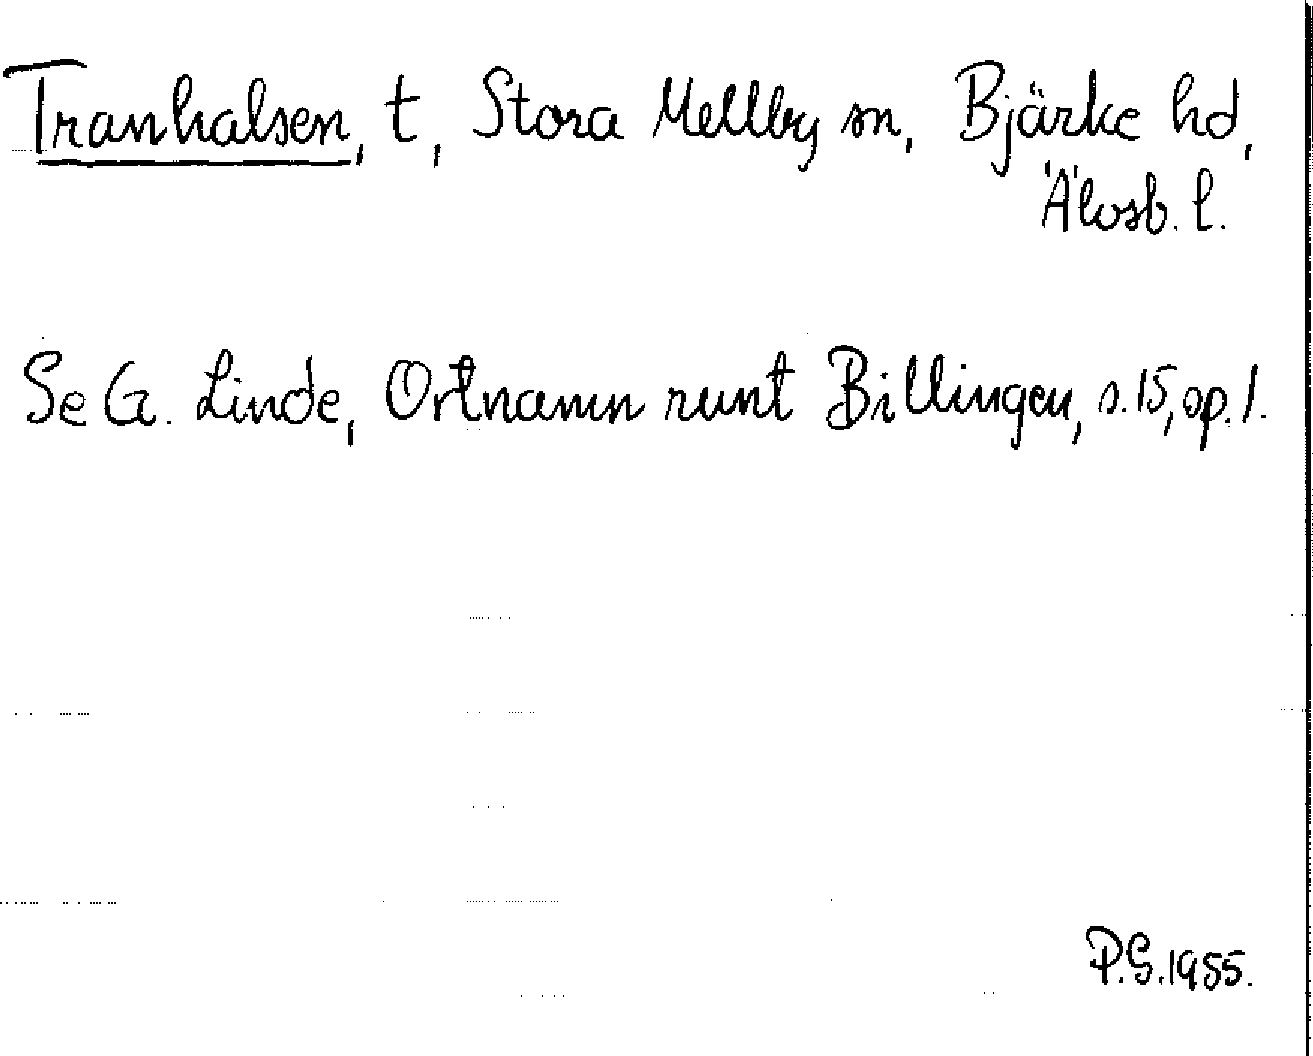 Tranhalsen, t, Stora Mellby sn, Bjärke hd,
Älvsb. l.
Se G. Linde, Ortnamn runt Billingen, s. 15, sp. 1.
P.S. 1955.